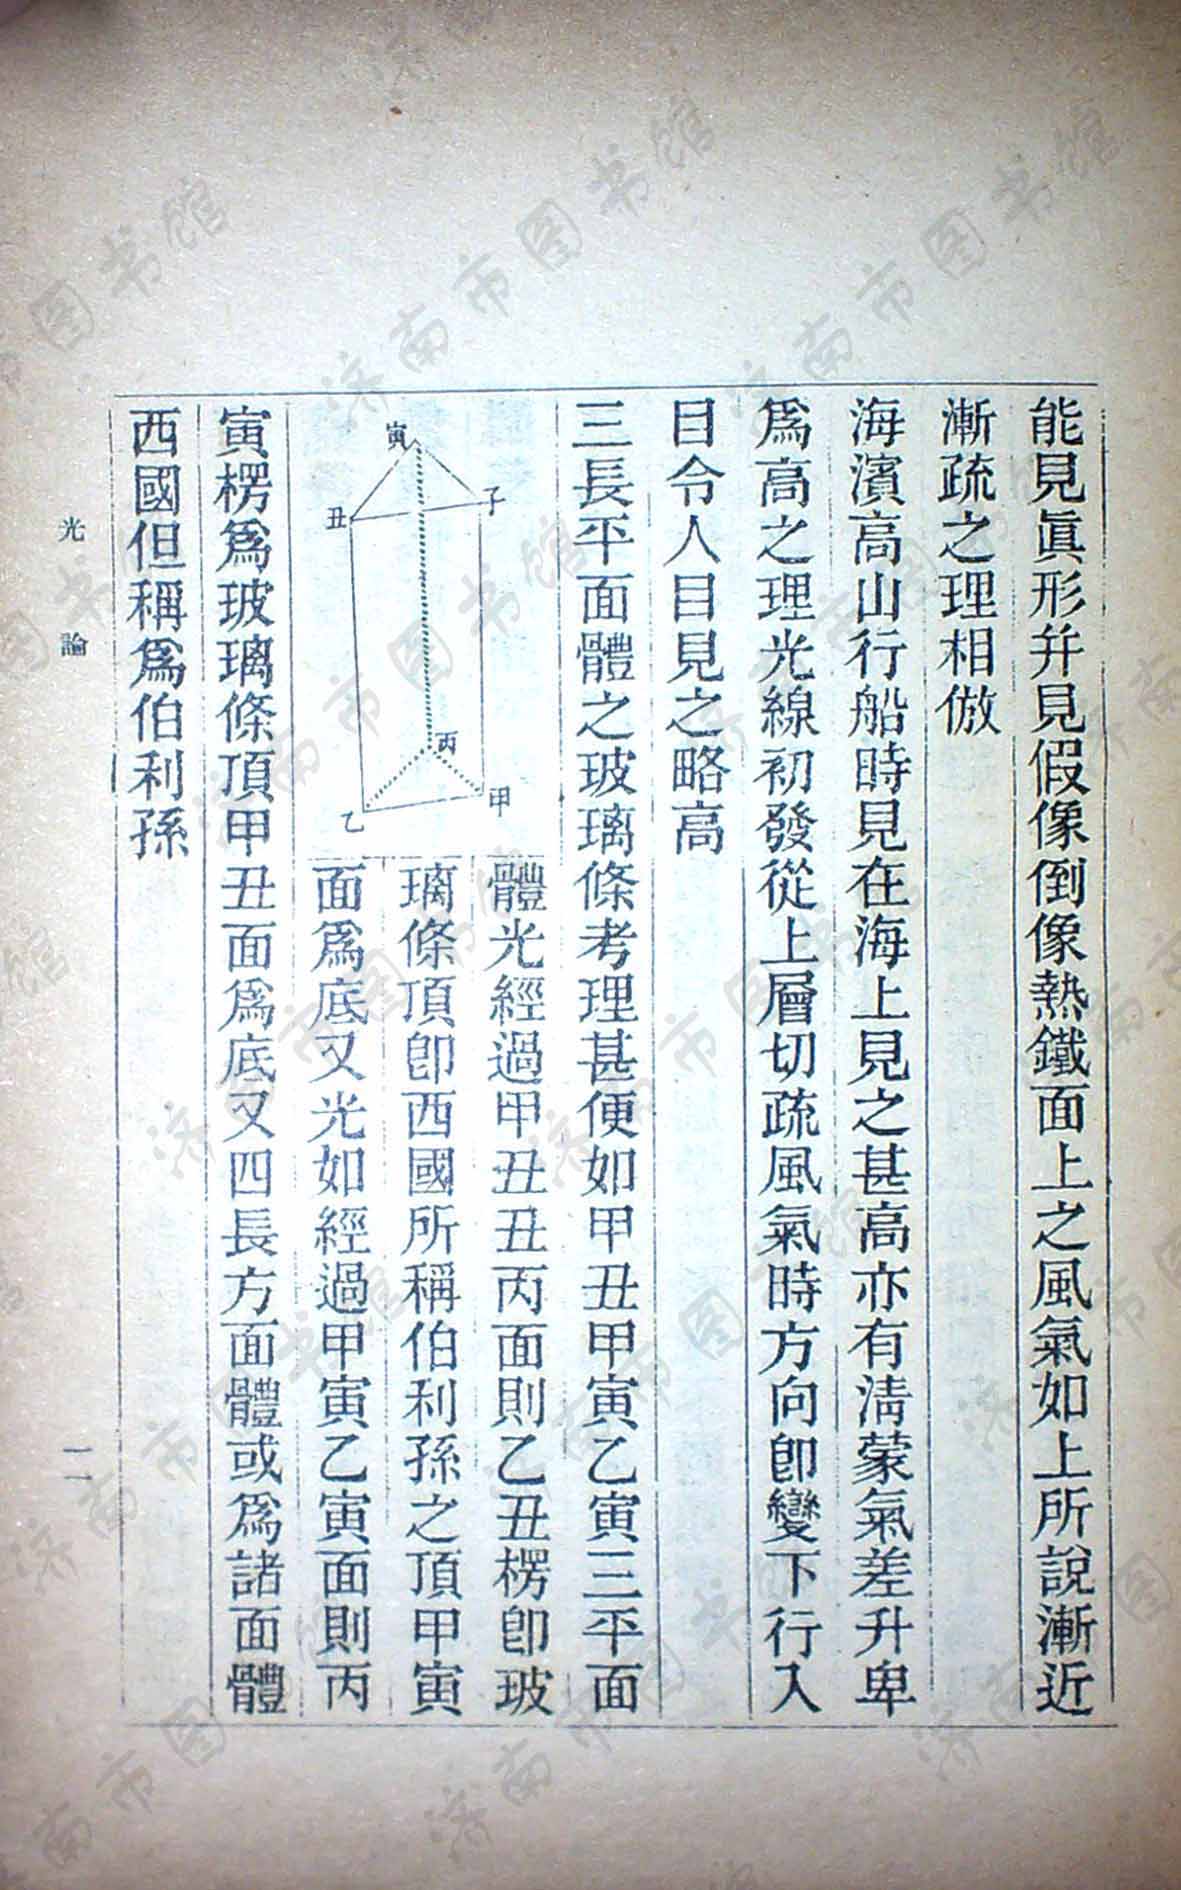 能見眞形幷見假像倒像熱鐵面上之風氣如上所說漸近
漸疏之理相倣
海濱高山行船時見在海上見之甚高亦有淸蒙氣差升卑
爲高之理光線初發從上層切疏風氣時方向卽變下行入
目令人目見之略高
三長平面體之玻璃條考理甚便如甲丑甲寅乙寅三平面
體光經過甲丑丑丙面則乙丑楞卽玻
璃條頂卽西國所稱伯利孫之頂甲寅
面爲底又光如經過甲寅乙寅面則丙
寅
子
丑
丙
甲
乙
寅楞爲玻璃條頂甲丑面爲底又四長方面體或爲諸面體
西國但稱爲伯利孫
光論
一一
济南市图书馆